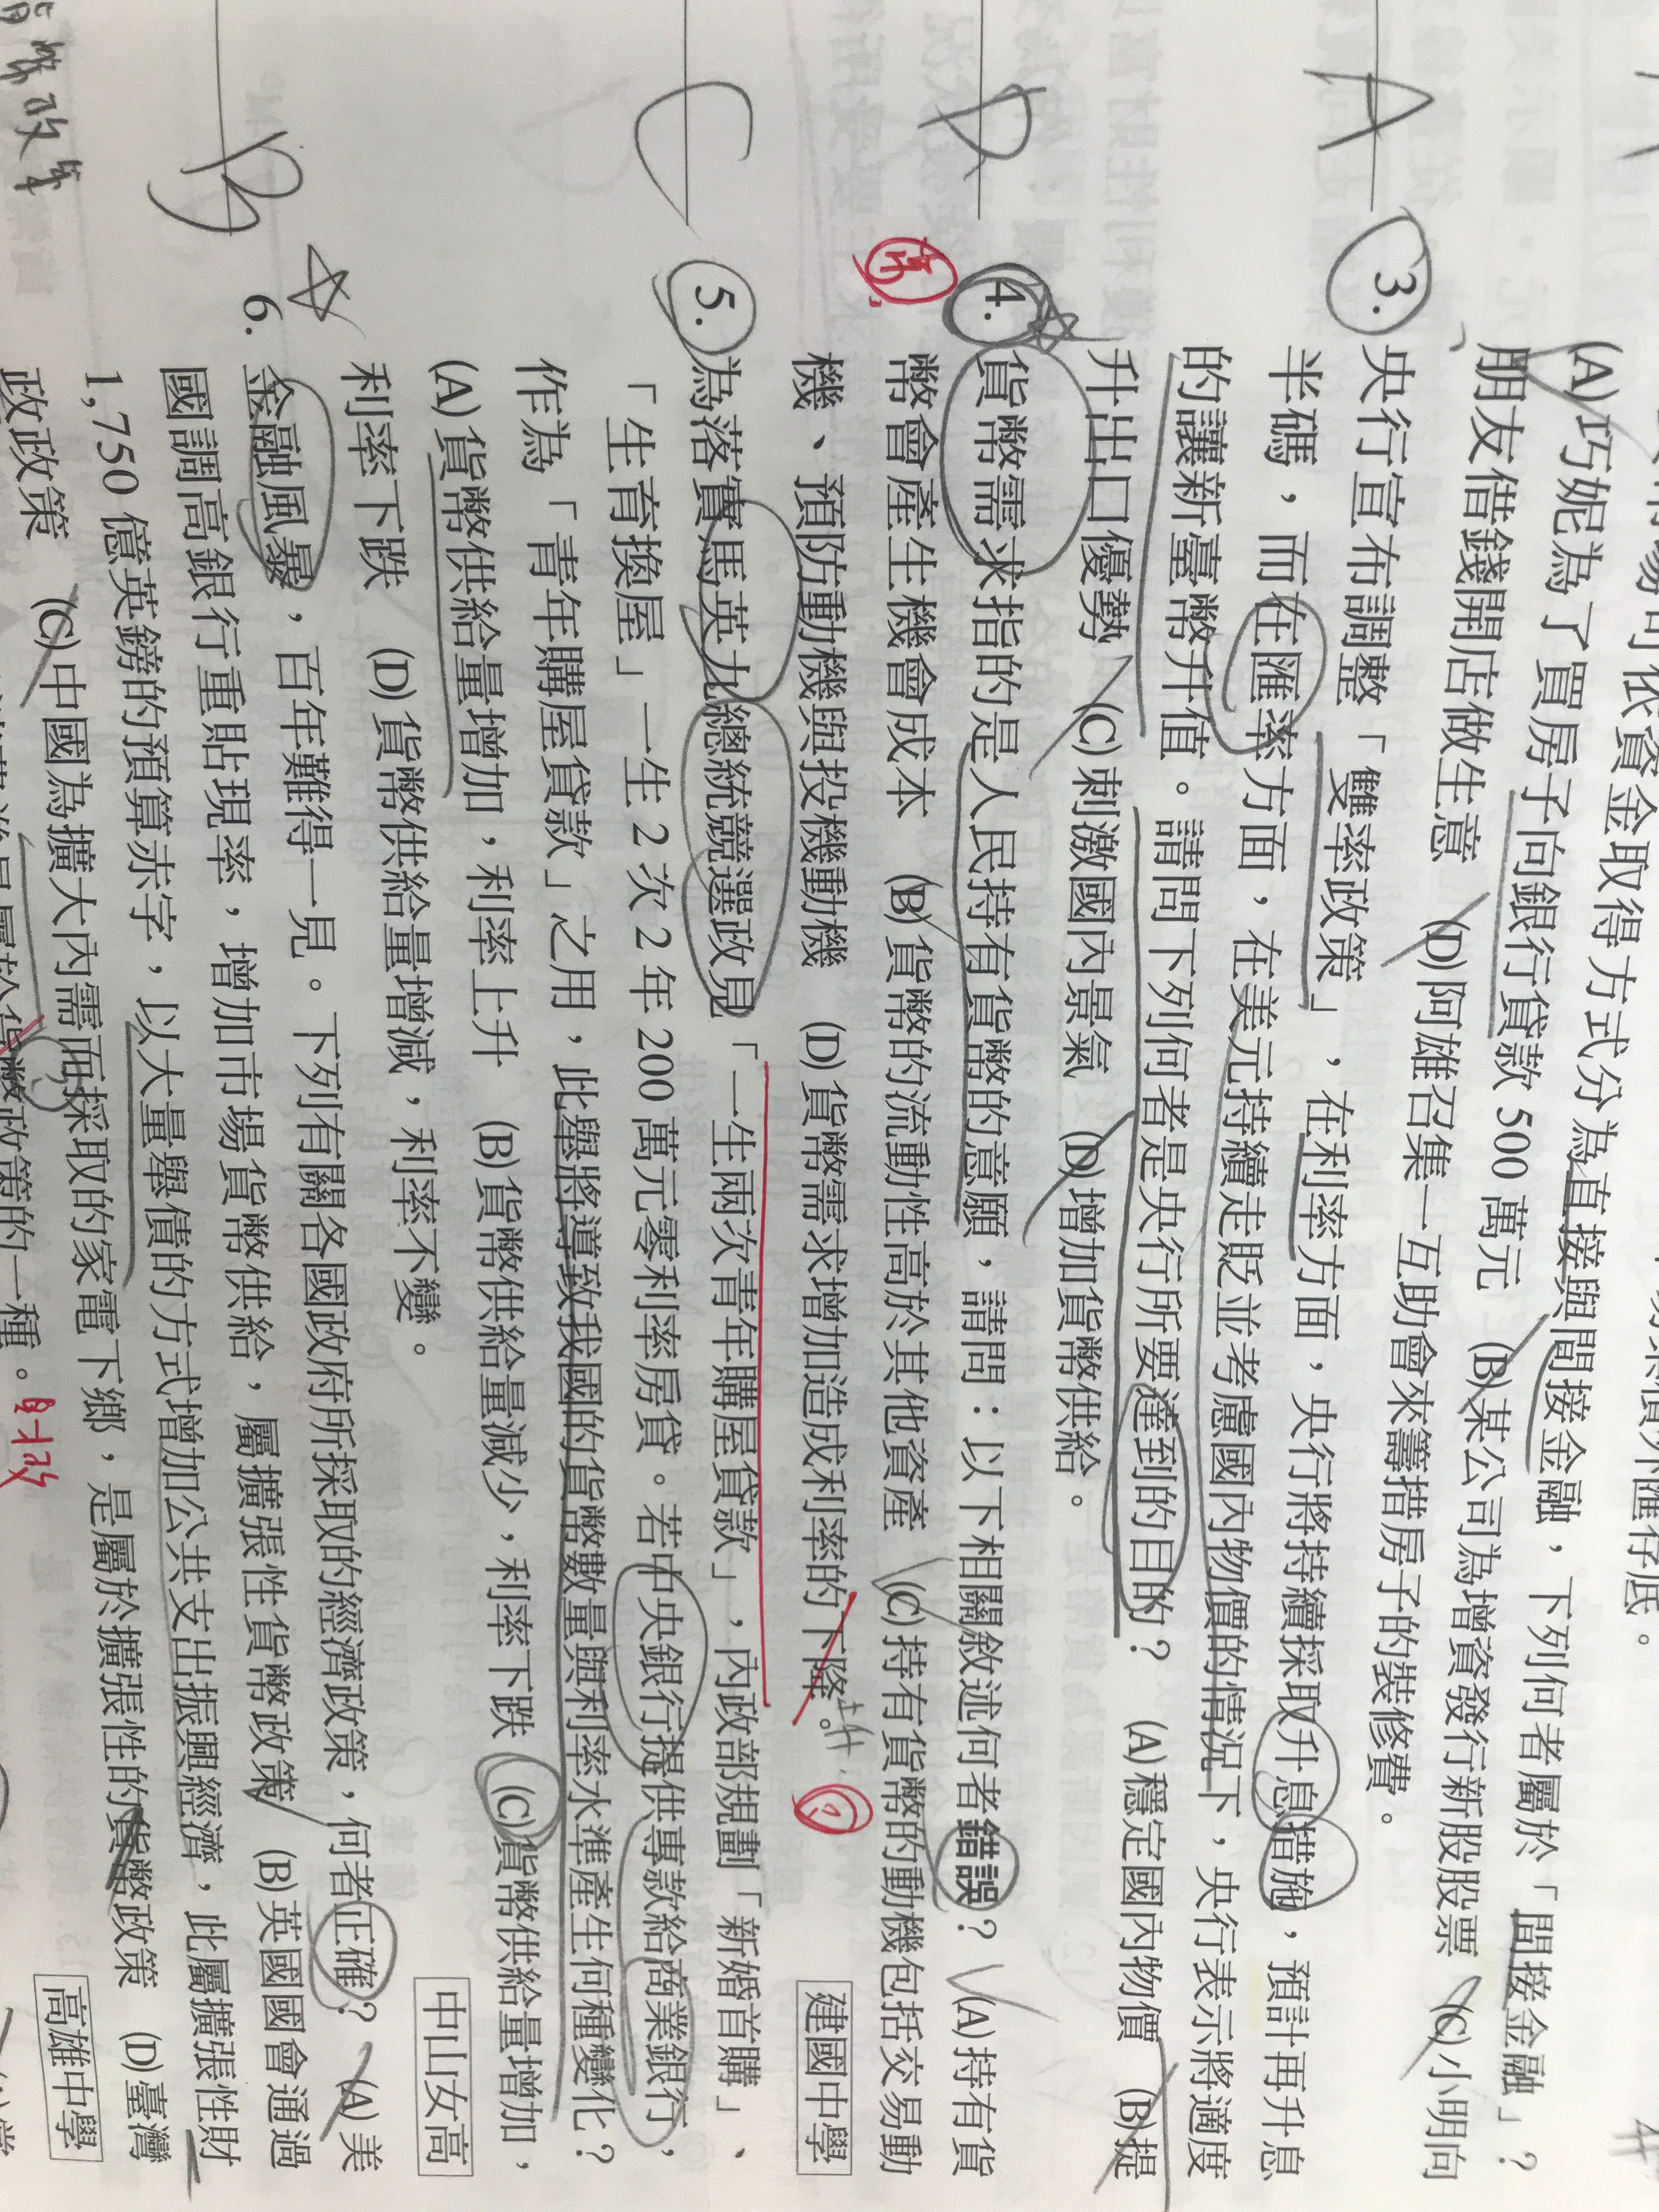 (A)巧妮為了買房子向銀行貸款 500 萬元 (B)某公司為增資發行新股股票 (C)小明向
朋友借錢開店做生意 (D)阿雄召集一互助會來籌措房子的裝修費。
A 3. 央行宣布調整「雙率政策」,在利率方面,央行將持續採取升息措施,預計再升息
半碼,而在匯率方面,在美元持續走貶並考慮國內物價的情況下,央行表示將適度
的讓新臺幣升值。請問下列何者是央行所要達到的目的? (A)穩定國內物價 (B)提
升出口優勢 (C)刺激國內景氣 (D)增加貨幣供給。
D 4. 貨幣需求指的是人民持有貨幣的意願,請問:以下相關敘述何者錯誤? (A)持有貨
幣會產生機會成本 (B)貨幣的流動性高於其他資產 (C)持有貨幣的動機包括交易動
機、預防動機與投機動機 (D)貨幣需求增加造成利率的下降。上升 建國中學
C 5. 為落實馬英九總統競選政見「一生兩次青年購屋貸款」,內政部規劃「新婚首購」、
「生育換屋」一生 2 次 2 年 200 萬元零利率房貸。若中央銀行提供專款給商業銀行,
作為「青年購屋貸款」之用,此舉將導致我國的貨幣數量與利率水準產生何種變化?
(A)貨幣供給量增加,利率上升 (B)貨幣供給量減少,利率下跌 (C)貨幣供給量增加,
利率下跌 (D)貨幣供給量增減,利率不變。 中山女高
B 6. 金融風暴,百年難得一見。下列有關各國政府所採取的經濟政策,何者正確? (A)美
國調高銀行重貼現率,增加市場貨幣供給,屬擴張性貨幣政策 (B)英國國會通過
1,750 億英鎊的預算赤字,以大量舉債的方式增加公共支出振興經濟,此屬擴張性財
政政策 (C)中國為擴大內需而採取的家電下鄉,是屬於擴張性的貨幣政策 (D)臺灣
貨幣政策的一種。財政 高雄中學